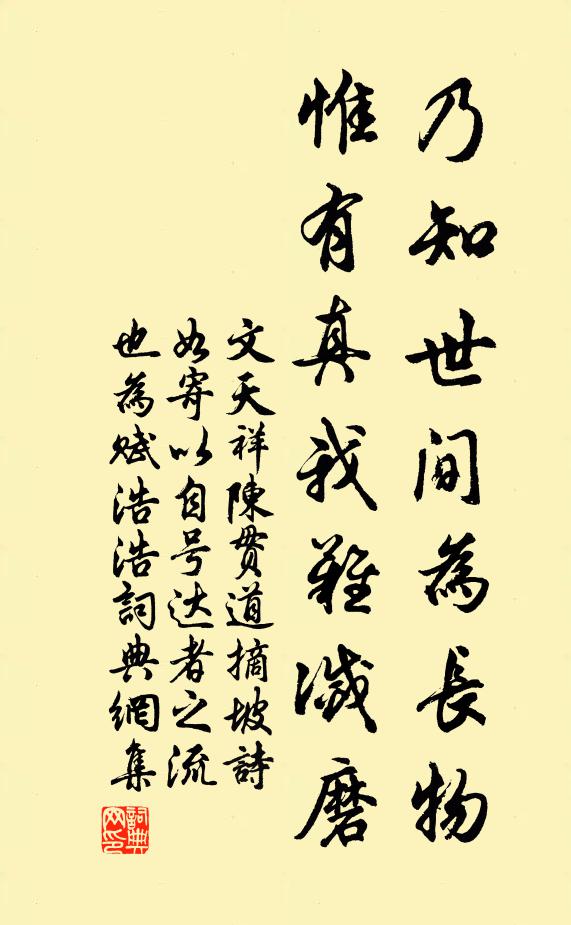 乃知世间為長物
惟有真我難滅磨
文天祥陳貫道摘坡詩
如寄以自号达者之流
也為赋浩浩詞典網集
詞典网印